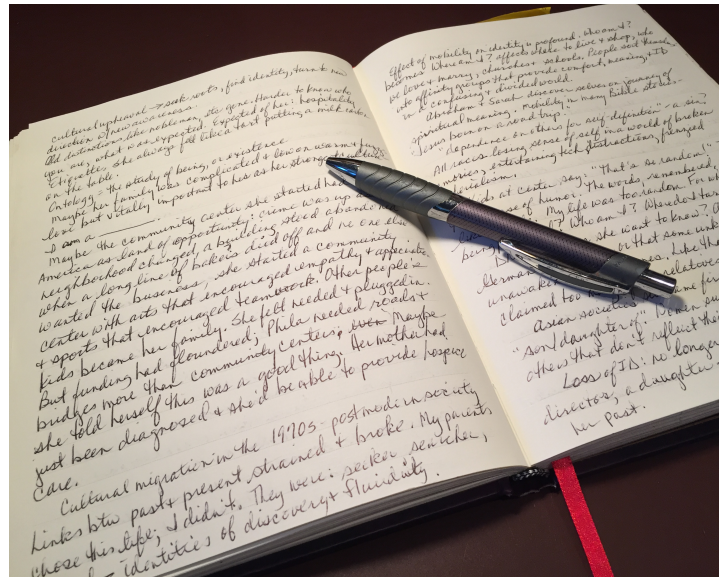 Cultural upheaval → seek roots, find identity, turn to new
direction of new awareness.
Old distinctions like nobleman, etc gone. Harder to know who
you are, what was expected. Expected of her: hospitality
Etiquette: she always felt like a tart putting a milk carton
on the table.
Ontology - the study of being, or existence.
Maybe her family was complicated & low on warm & fuzzy
love but vitally important to his as her strongest
I am a
Maybe the community center she started had
America as land of opportunity: crime was up as
neighborhood changed, a building stood abandoned
when a long line of bakers died off and no one else
wanted the business, she started a community
center with arts that encouraged empathy & appreciation
& sports that encouraged teamwork. Other people's
kids became her family. She felt needed & plugged in.
But funding had floundered; Phila needed roads &
bridges more than community centers, even Maybe
she told herself this was a good thing. Her mother had
just been diagnosed & she'd be able to provide hospice
care.
Cultural migration in the 1970s - postmodern society
Links btw past & present strained & broke. My parents
chose this life; I didn't. They were: seeker, searcher,
identities of discovery & fluidity.
Effect of mobility on identity is profound. Who am I?
becomes Where am I? affects where to live & shop, who
we love & marry, churches & schools. People sort themselves
into affinity groups that provide comfort, meaning, & ID
in a confusing & divided world.
Abraham & Sarah discover selves on journey of
spiritual meaning. Mobility in many Bible stories -
Jesus born on a road trip.
"dependence on others for self-definition" - a sin?
All races losing sense of self in a world of broken
entertaining tech distractions, frenzied
materialism.
Kids at center say: "That's so random!"
sense of humor: the words, remembered,
My life was too random. For who
Who am I?
she want to know?
or that some
German
unawake Like the
claimed too relatives
Asian societies
"son/daughter of." Women
others that don't reflect the
Loss of ID: no longer
director, a daughter
her past.